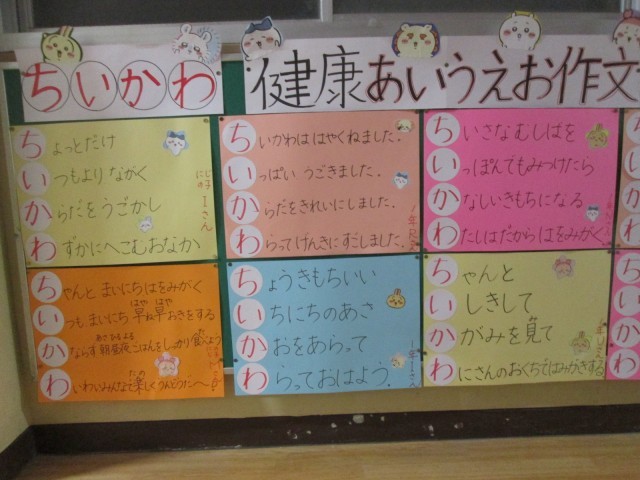 ちいかわ 健康あいうえお作文
ちょっとだけ
いつもより ながく
からだをうごかし
わずかにへこむおなか
ちいかわは はやくねました。
いっぱい うごきました。
からだをきれいにしました。
わらってげんきにすごしました。
ちいさなむしばを
いっぽんでもみつけたら
かなしいきもちになる
わたしはだからはをみがく
ちゃんと まいにちはをみがく
いつも まいにち 早ね早おきをする
かならず 朝昼夜ごはんをしっかり食べよう
わいわいみんなで楽しくうんどうだ〜
ちょうきもちいい
いちにちのあさ
かおをあらって
わらっておはよう。
ちゃんと
いしきして
かがみを見て
わにさんのおくちではみがきする